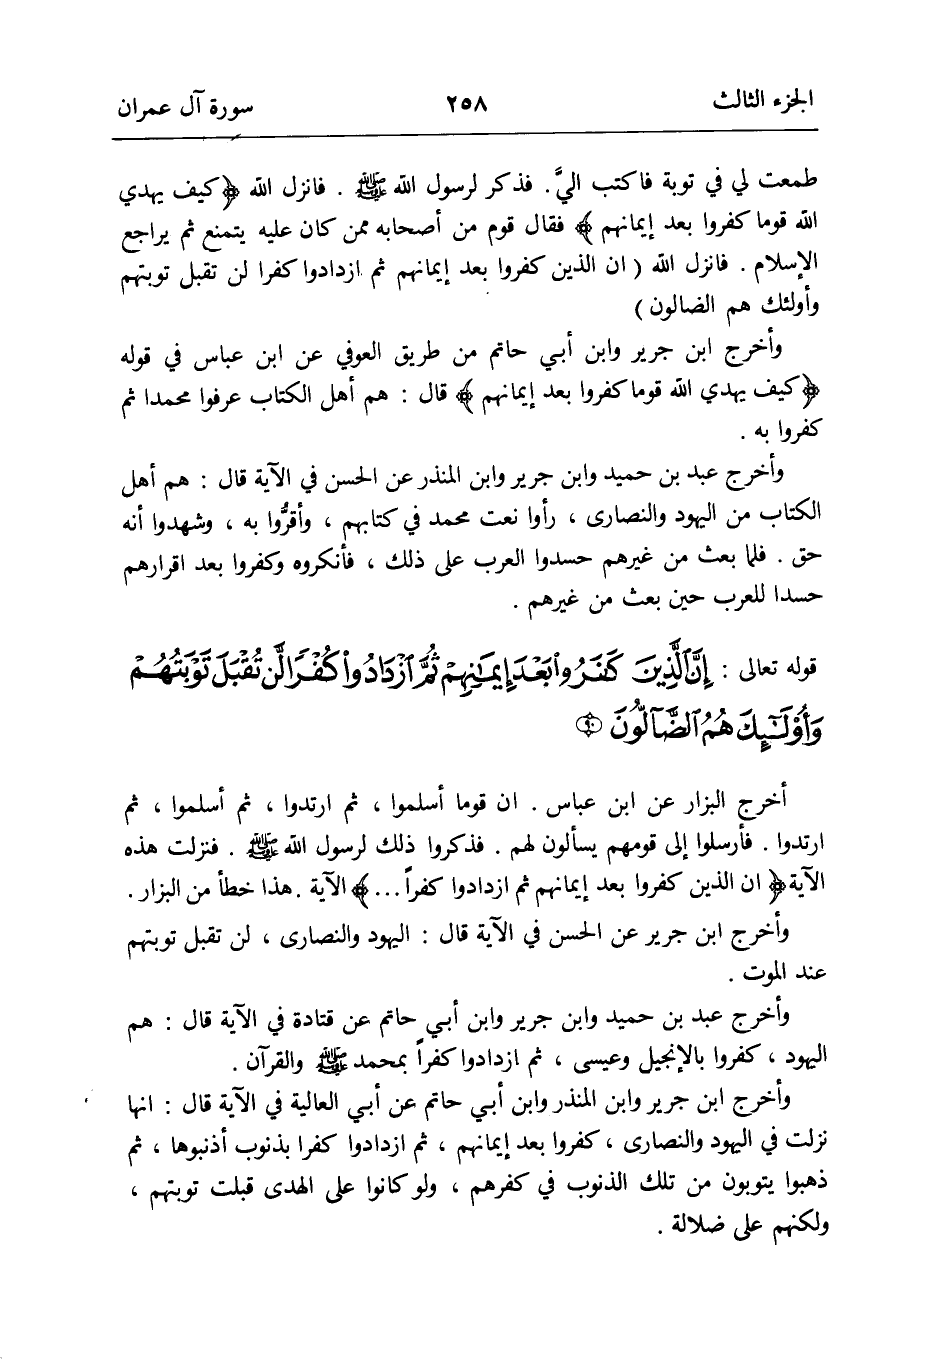 الجزء الثالث ٢٥٨ سورة آل عمران
طمعت لي في توبة فاكتب اليَّ. فذكر لرسول الله ﷺ . فانزل الله ﴿كيف يهدي
الله قوما كفروا بعد إيمانهم ﴾ فقال قوم من أصحابه ممن كان عليه يتمنع ثم يراجع
الإسلام . فانزل الله ( ان الذين كفروا بعد إيمانهم ثم ازدادوا كفرا لن تقبل توبتهم
وأولئك هم الضالون )
وأخرج ابن جرير وابن أبي حاتم من طريق العوفي عن ابن عباس في قوله
﴿كيف يهدي الله قوما كفروا بعد إيمانهم ﴾ قال : هم أهل الكتاب عرفوا محمدا ثم
كفروا به .
وأخرج عبد بن حميد وابن جرير وابن المنذر عن الحسن في الآية قال : هم أهل
الكتاب من اليهود والنصارى ، رأوا نعت محمد في كتابهم ، وأقرُّوا به ، وشهدوا أنه
حق . فلما بعث من غيرهم حسدوا العرب على ذلك ، فأنكروه وكفروا بعد اقرارهم
حسدا للعرب حين بعث من غيرهم .
قوله تعالى : إِنَّ ٱلَّذِينَ كَفَرُوا۟ بَعْدَ إِيمَـٰنِهِمْ ثُمَّ ٱزْدَادُوا۟ كُفْرًا لَّن تُقْبَلَ تَوْبَتُهُمْ
وَأُو۟لَـٰٓئِكَ هُمُ ٱلضَّآلُّونَ ۝٩٠
أخرج البزار عن ابن عباس . ان قوما أسلموا ، ثم ارتدوا ، ثم أسلموا ، ثم
ارتدوا . فأرسلوا إلى قومهم يسألون لهم . فذكروا ذلك لرسول الله ﷺ . فنزلت هذه
الآية ﴿ ان الذين كفروا بعد إيمانهم ثم ازدادوا كفراً ... ﴾ الآية . هذا خطأ من البزار .
وأخرج ابن جرير عن الحسن في الآية قال : اليهود والنصارى ، لن تقبل توبتهم
عند الموت .
وأخرج عبد بن حميد وابن جرير وابن أبي حاتم عن قتادة في الآية قال : هم
اليهود ، كفروا بالإنجيل وعيسى ، ثم ازدادوا كفراً بمحمد ﷺ والقرآن .
وأخرج ابن جرير وابن المنذر وابن أبي حاتم عن أبي العالية في الآية قال : انها
نزلت في اليهود والنصارى ، كفروا بعد إيمانهم ، ثم ازدادوا كفرا بذنوب أذنبوها ، ثم
ذهبوا يتوبون من تلك الذنوب في كفرهم ، ولو كانوا على الهدى قبلت توبتهم ،
ولكنهم على ضلالة .